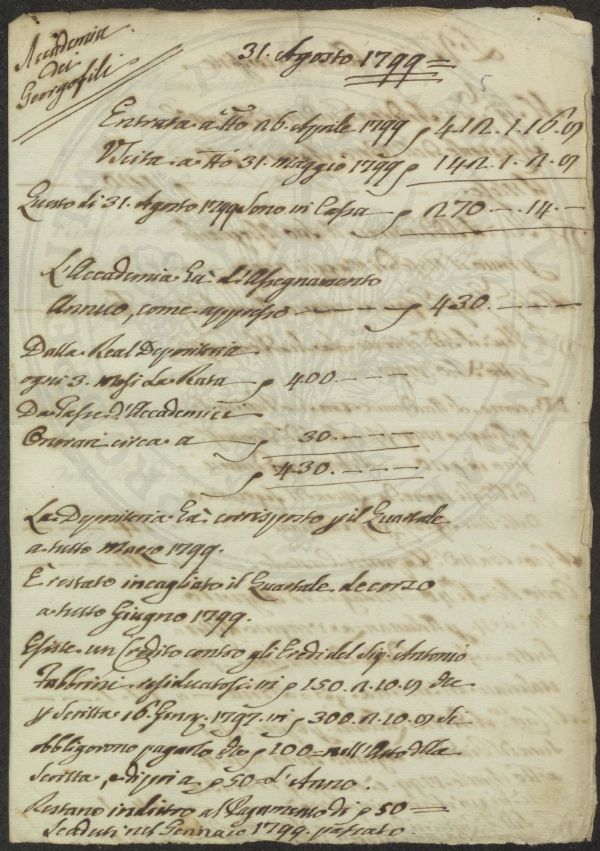 Accademia
dei
Georgofili
31. Agosto 1799=
5
Entrata a tto 26. Aprile 1799 412.1.16.
Vscita a tto 31. maggio 1799 142.1.2.
Questo dì 31. Agosto 1799 sono in Cassa 270 — 14 —
L'Accademia ha d'Assegnamento
Annuo, come appresso — — — 430. — — —
Dalla Real Depositeria
ogni 3. mesi La Rata 400 — — —
Da Tasse d'Accademici
Onorari circa a 30 — — —
430. — — —
La Depositeria ha corrisposto p il Quartale
a tutto marzo 1799.
È restato incagliato il Quartale decorso
a tutto Giugno 1799.
Esiste un Credito contro gli Eredi del Sigr. Antonio
Fabbrini residuatosi in 150.2.10. dte
p Scritta 16. 1797. in 300.2.10. Si
obbligorono pagarlo 100= nell'Atto della
Scritta, e di poi a 50= l'Anno.
Restano indietro al Pagamento di 50=
Scaduti nel Gennaio 1799. passato.